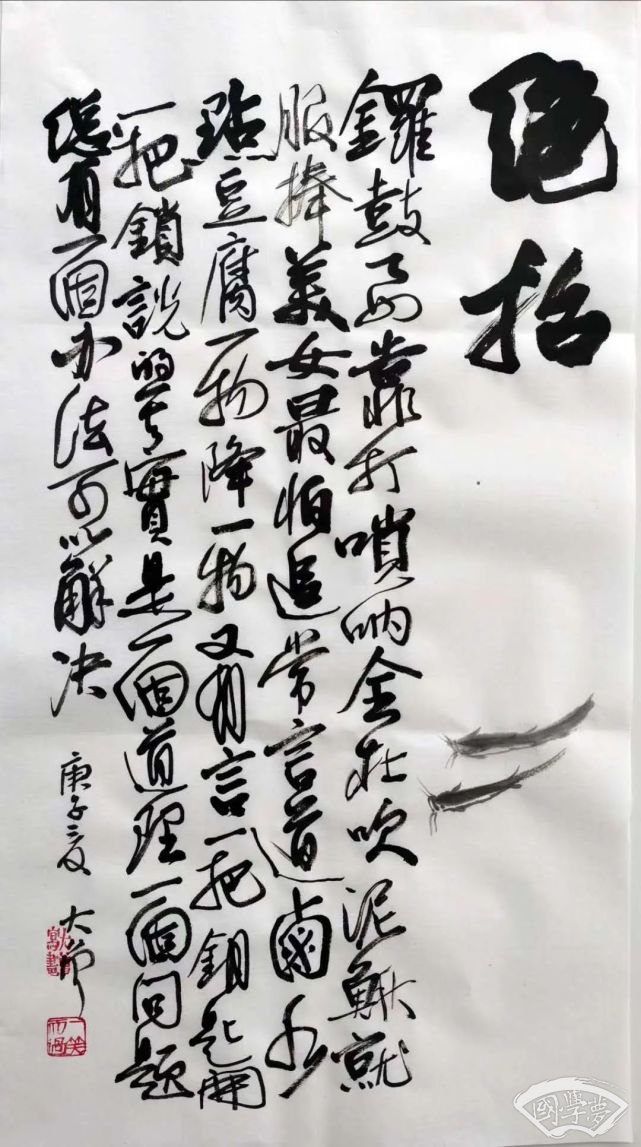 绝招
鑼鼓靠打嗩呐全在吹泥鰍就
服捧美女最怕追常言道鹵水
點豆腐一物降一物又有言一把鈅匙開
一把鎖說的其實是一個道理一個問題
總有一個办法可以解决
庚子夏 大
一笑而過
國學夢